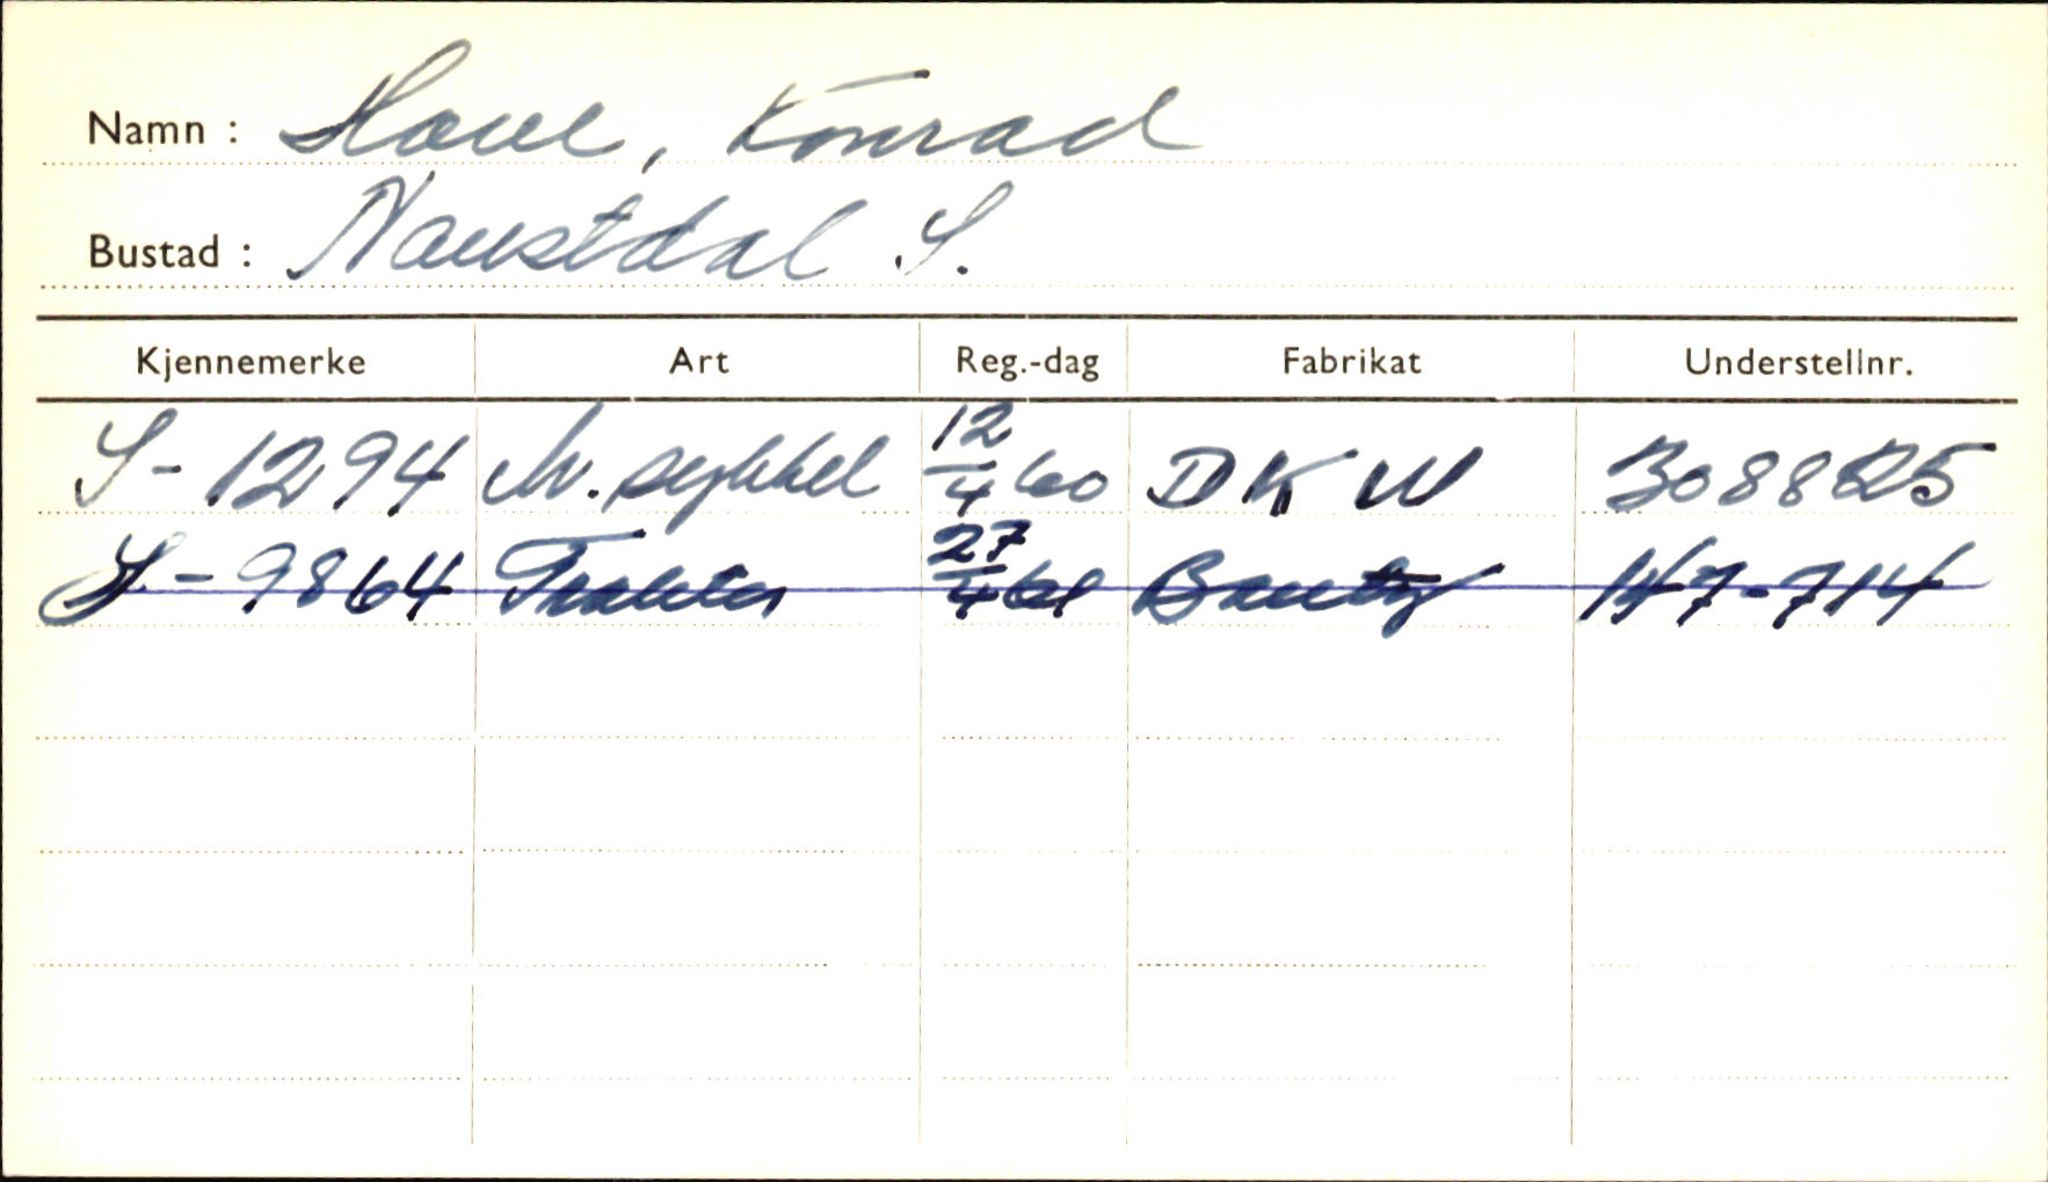 Namn : Hove, Konrad
Bustad : Naustdal S.
Kjennemerke Art Reg.-dag Fabrikat Understellnr.
S-1294 M.sykkel 12/4 60 DKW 3088825
S-9864 Traktor 27/4 61 Bautz 147-714